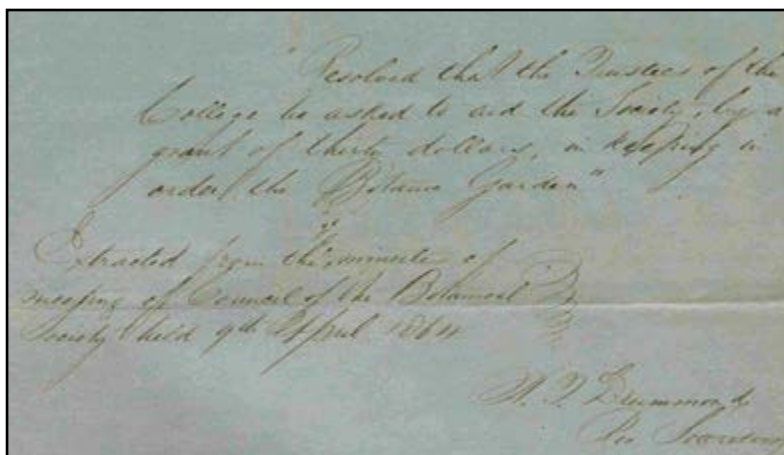 "Resolved that the Trustees of the
College be asked to aid the Society, by a
grant of thirty dollars, in keeping in
order the Botanic Garden"
Extracted from the minutes of
meeting of Council of the Botanical
Society held 9th April 1864
A. T. Drummond
Secretary